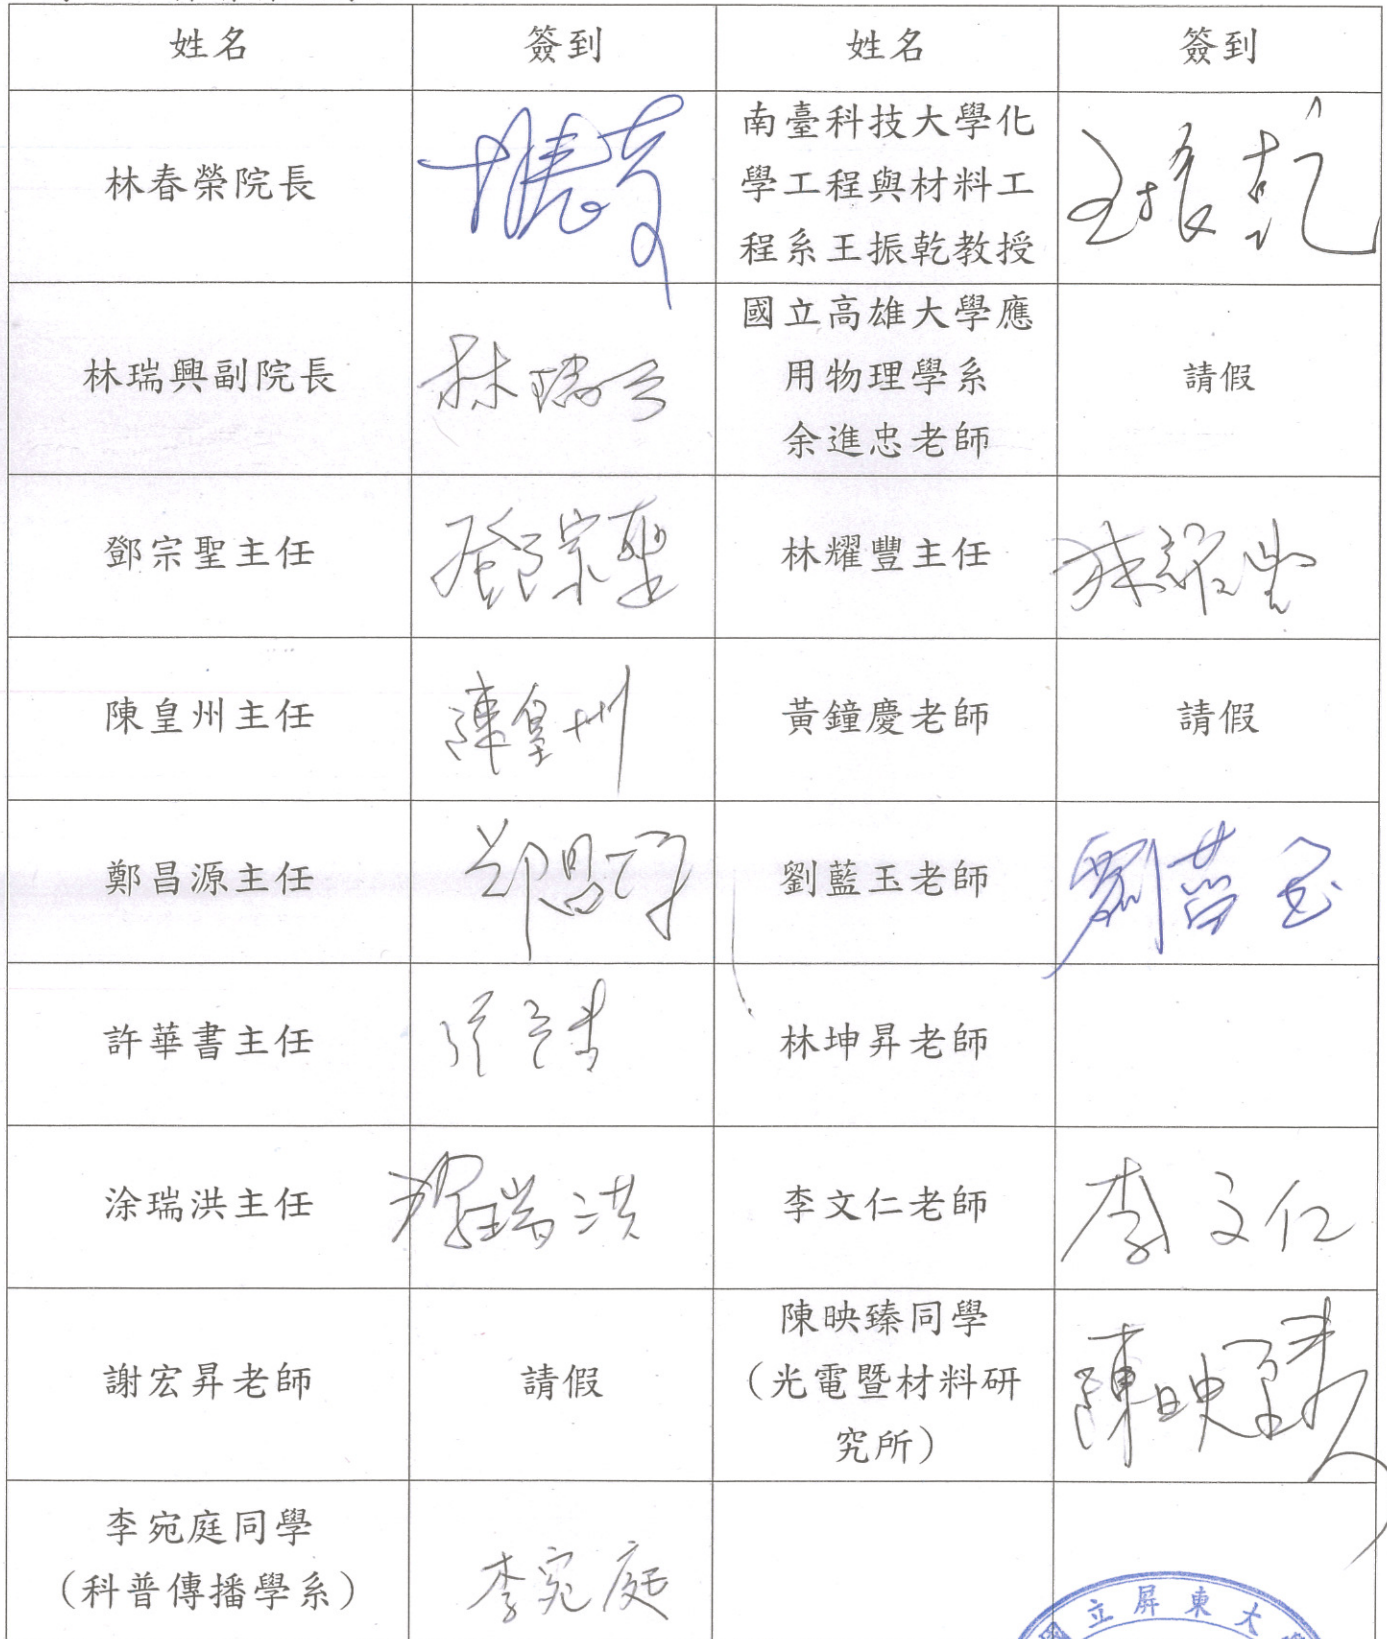 姓名 簽到 姓名 簽到
林春榮院長
南臺科技大學化
學工程與材料工
程系王振乾教授
王振乾
林瑞興副院長
林瑞興
國立高雄大學應
用物理學系
余進忠老師
請假
鄧宗聖主任
鄧宗聖
林耀豐主任
林耀豐
陳皇州主任
陳皇州
黃鐘慶老師
請假
鄭昌源主任
劉藍玉老師
劉藍玉
許華書主任
林坤昇老師
涂瑞洪主任
涂瑞洪
李文仁老師
李文仁
謝宏昇老師
請假
陳映臻同學
(光電暨材料研
究所)
陳映臻
李宛庭同學
(科普傳播學系)
李宛庭
國立屏東大學